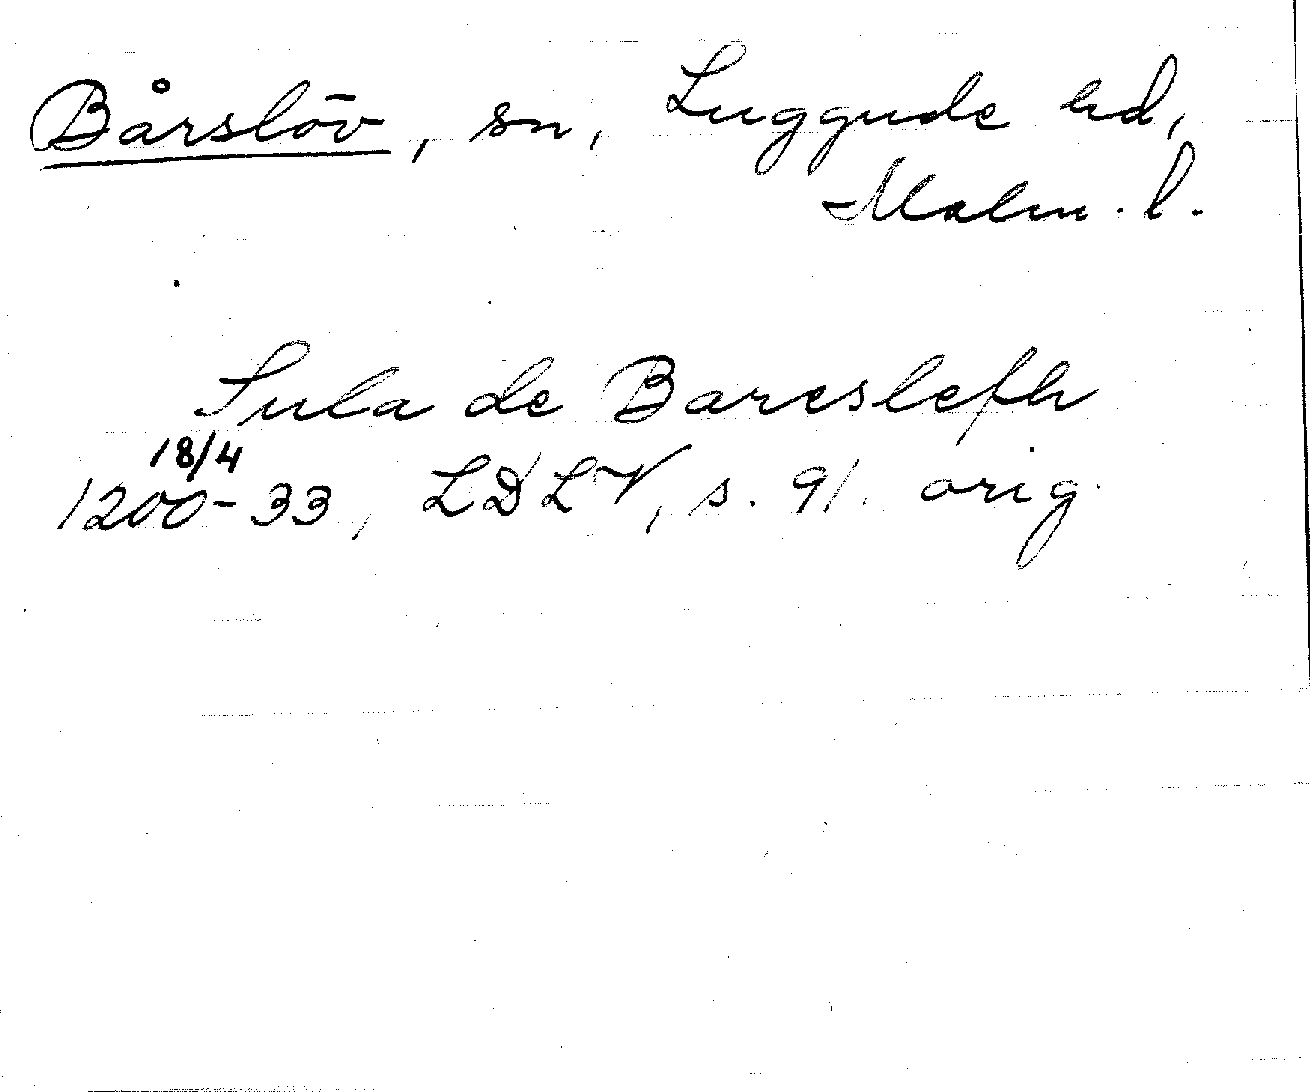 Bårslöv, sn, Luggude hd,
Malm. l.
Sula de Bareslefh
18/4
1200-33, LDLV, s. 91. orig.